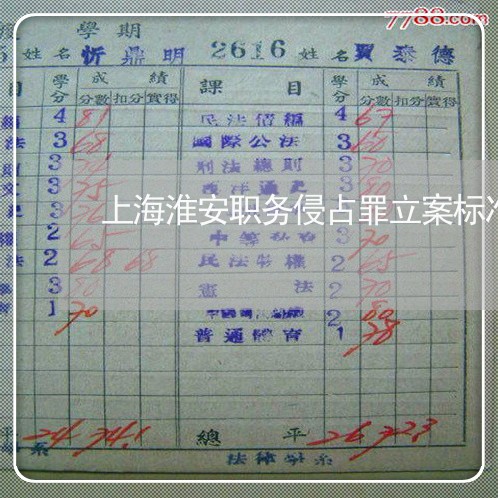 7788.com
學期
姓名 忻鼎明 2616 姓名 賈泰德
目 學分 成績 課目 學分 成績
分數 扣分 實得 分數 扣分 實得
4 81 民法債編 4 67
法 3 68 國際公法 3 60
3 刑法總則 3 70
3 75 西洋通史 3 80
上海淮安职务侵占罪立案标准
2 65 3 70
法 2 68 68 民法物權 2 65
3 80 憲法 2 70
1 70 2 80
普通體育 1 78
平 24 74.1 總平 26 72.3
系 法律學系